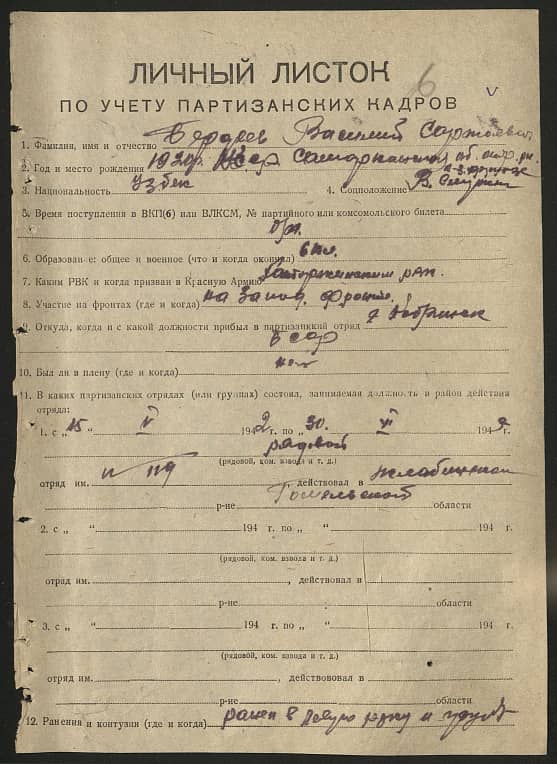 6
V
ЛИЧНЫЙ ЛИСТОК
ПО УЧЕТУ ПАРТИЗАНСКИХ КАДРОВ
1. Фамилия, имя и отчество Василий
2. Год и место рождения 1920г.
3. Национальность Узбек 4. Соцположение
5. Время поступления в ВКП(б) или ВЛКСМ, № партийного или комсомольского билета
6. Образование: общее и военное (что и когда окончил) 6 кл.
7. Каким РВК и когда призван в Красную Армию
8. Участие на фронтах (где и когда) на Запад. фронте.
9. Откуда, когда и с какой должности прибыл в партизанский отряд
БССР
10. Был ли в плену (где и когда) нет
11. В каких партизанских отрядах (или группах) состоял, занимаемая должность и район действия
отряда:
1. с „ 15 “ 1942 г. по „ 30. “ 194 г.
рядовой
(рядовой, ком. взвода и т. д.)
отряд им. , действовал в
р-не Гомельской области
2. с „ “ 194 г. по „ “ 194 г.
(рядовой, ком. взвода и т. д.)
отряд им. , действовал в
р-не области
3. с „ “ 194 г. по „ “ 194 г.
(рядовой, ком. взвода и т. д.)
отряд им. , действововал в
р-не области
12. Ранения и контузии (где и когда) ранен в левую руку и грудь